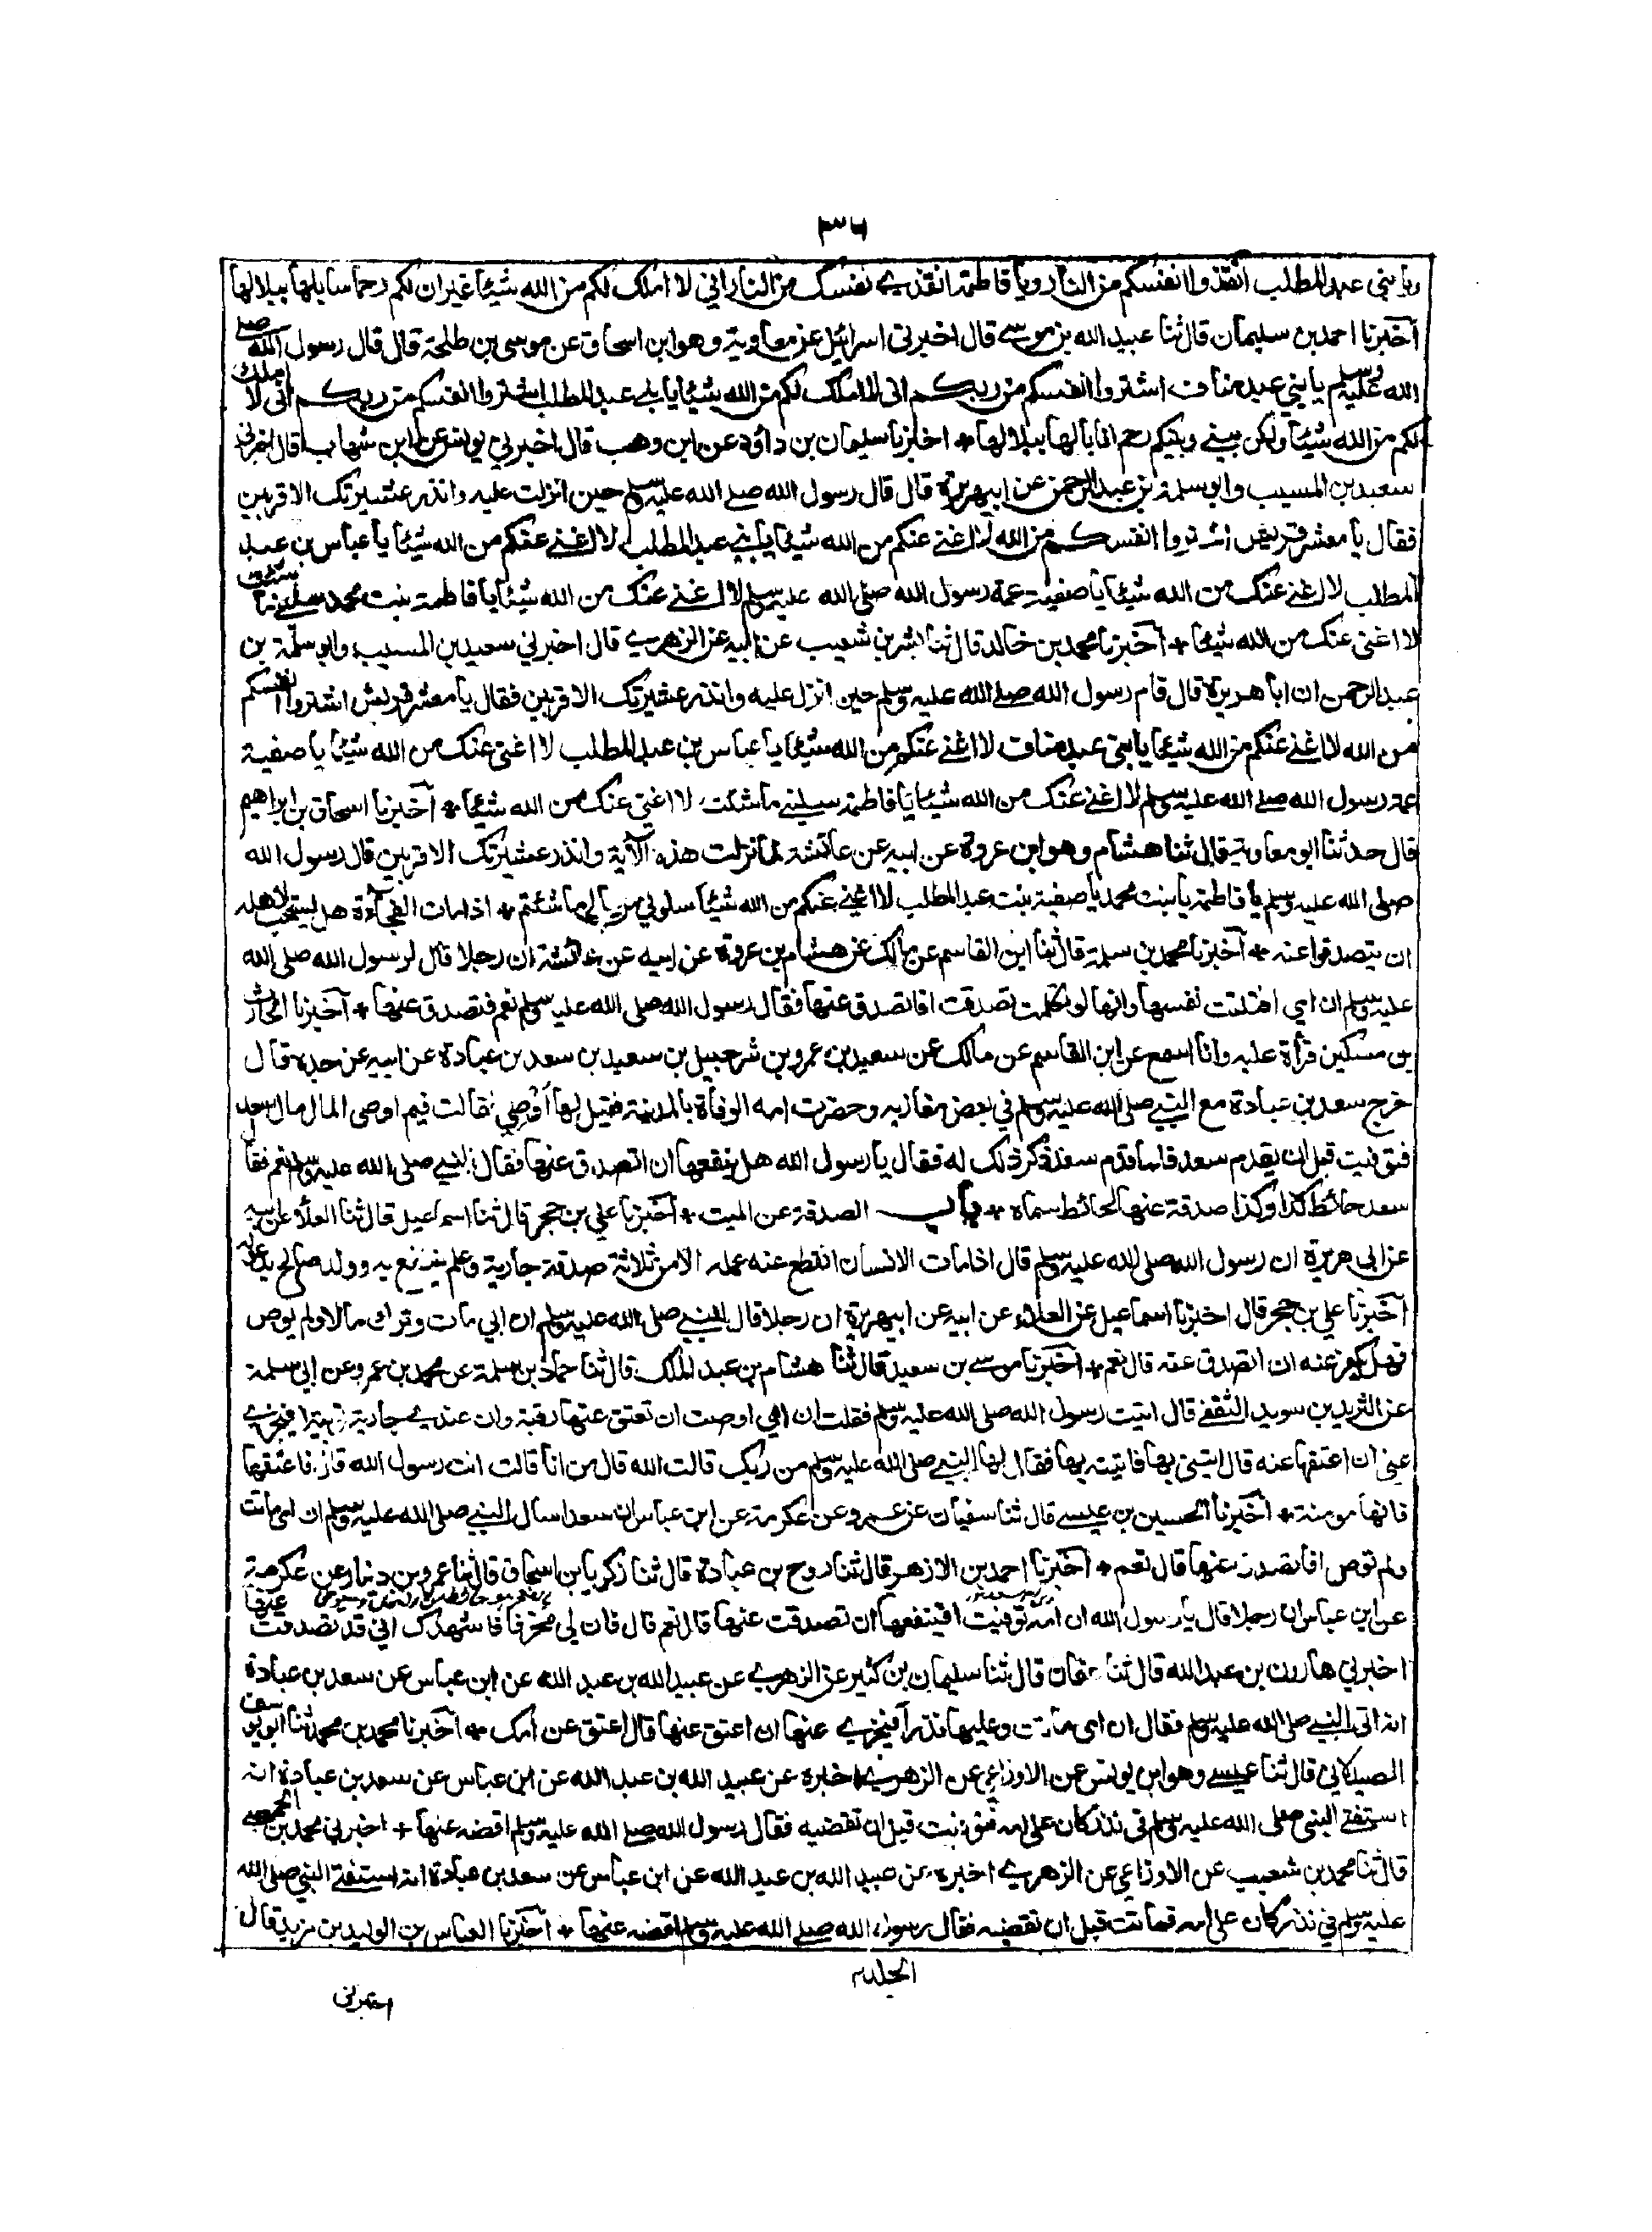 ٣٦
ويا بني عبد المطلب انقذوا انفسكم من النار ويا فاطمة انقذي نفسك من النار اني لا املك لكم من الله شيئا غير ان لكم رحما سابلها ببلالها
آخبرنا احمد بن سليمان قال ثنا عبيد الله بن موسى قال اخبرني اسرائيل عن معاوية وهو ابن اسحاق عن موسى بن طلحة قال قال رسول الله صلى
الله عليه وسلم يا بني عبد مناف اشتروا انفسكم من ربكم اني لا املك لكم من الله شيئا يا بني عبد المطلب اشتروا انفسكم من ربكم اني لا املك
لكم من الله شيئا ولكن بيني وبينكم رحم انا بالها ببلالها + اخبرنا سليمان بن داؤد عن ابن وهب قال اخبرني يونس عن ابن شهاب قال اخبرني
سعيد بن المسيب وابو سلمة بن عبد الرحمن عن ابي هريرة قال قال رسول الله صلى الله عليه وسلم حين انزلت عليه وانذر عشيرتك الاقربين
فقال يا معشر قريش اشتروا انفسكم من الله لا اغني عنكم من الله شيئا يا بني عبد المطلب لا اغني عنكم من الله شيئا يا عباس بن عبد
المطلب لا اغني عنك من الله شيئا يا صفية عمة رسول الله صلى الله عليه وسلم لا اغني عنك من الله شيئا يا فاطمة بنت محمد سليني ما شئت
لا اغنى عنك من الله شيئا + آخبرنا محمد بن خالد قال ثنا بشر بن شعيب عن ابيه عن الزهري قال اخبرني سعيد بن المسيب وابو سلمة بن
عبد الرحمن ان ابا هريرة قال قام رسول الله صلى الله عليه وسلم حين انزل عليه وانذر عشيرتك الاقربين فقال يا معشر قريش اشتروا انفسكم
من الله لا اغني عنكم من الله شيئا يا بني عبد مناف لا اغني عنكم من الله شيئا يا عباس بن عبد المطلب لا اغنى عنك من الله شيئا يا صفية
عمة رسول الله صلى الله عليه وسلم لا اغني عنك من الله شيئا يا فاطمة سليني ما شئت لا اغنى عنك من الله شيئا + آخبرنا اسحاق بن ابراهيم
قال حدثنا ابو معاوية قال ثنا هشام وهو ابن عروة عن ابيه عن عائشة لما نزلت هذه الآية وانذر عشيرتك الاقربين قال رسول الله
صلى الله عليه وسلم يا فاطمة يا بنت محمد يا صفية بنت عبد المطلب لا اغني عنكم من الله شيئا سلوني من مالي ما شئتم + اذا مات الفجآءة هل يستحب لاهله
ان يتصدقوا عنه + آخبرنا محمد بن سلمة قال ثنا ابن القاسم عن مالك عن هشام بن عروة عن ابيه عن عائشة ان رجلا قال لرسول الله صلى الله
عليه وسلم ان امي افتلتت نفسها وانها لو تكلمت تصدقت افاتصدق عنها فقال رسول الله صلى الله عليه وسلم نعم فتصدق عنها + آخبرنا الحارث
بن مسكين قرأة عليه وانا اسمع عن ابن القاسم عن مالك عن سعيد بن عمرو بن شرحبيل بن سعيد بن سعد بن عبادة عن ابيه عن جده قال
خرج سعد بن عبادة مع النبي صلى الله عليه وسلم في بعض مغازيه وحضرت امه الوفاة بالمدينة فقيل لها أوصي فقالت فيم اوصى المال مال سعد
فتوفيت قبل ان يقدم سعد فلما قدم سعد ذكر ذلك له فقال يا رسول الله هل ينفعها ان اتصدق عنها فقال النبي صلى الله عليه وسلم نعم فقال
سعد حائط كذا وكذا صدقة عنها لحائط سماه + باب الصدقة عن الميت + آخبرنا علي بن حجر قال ثنا اسماعيل قال ثنا العلاء عن ابيه
عن ابي هريرة ان رسول الله صلى الله عليه وسلم قال اذا مات الانسان انقطع عنه عمله الا من ثلاثة صدقة جارية وعلم ينتفع به وولد صالح يدعو له
آخبرنا علي بن حجر قال اخبرنا اسماعيل عن العلاء عن ابيه عن ابي هريرة ان رجلا قال للنبي صلى الله عليه وسلم ان ابي مات وترك مالا ولم يوص
فهل يكفر عنه ان اتصدق عنه قال نعم + آخبرنا موسى بن سعيد قال ثنا هشام بن عبد الملك قال ثنا حماد بن سلمة عن محمد بن عمرو عن ابي سلمة
عن الشريد بن سويد الثقفي قال اتيت رسول الله صلى الله عليه وسلم فقلت ان امي اوصت ان تعتق عنها رقبة وان عندي جارية نوبية افيجزي
عني ان اعتقها عنه قال ايتني بها فاتيته بها فقال لها النبي صلى الله عليه وسلم من ربك قالت الله قال من انا قالت انت رسول الله قال فاعتقها
فانها مومنة + آخبرنا الحسين بن عيسى قال ثنا سفيان عن عمرو عن عكرمة عن ابن عباس ان سعدا سال النبي صلى الله عليه وسلم ان امي ماتت
ولم توص افاتصدق عنها قال نعم + آخبرنا احمد بن الازهر قال ثنا روح بن عبادة قال ثنا زكريا بن اسحاق قال ثنا عمرو بن دينار عن عكرمة
عن ابن عباس ان رجلا قال يا رسول الله ان امه توفيت افينفعها ان تصدقت عنها قال نعم قال فان لي مخرفا فاشهدك اني قد تصدقت عنها
اخبرني هارون بن عبد الله قال ثنا عفان قال ثنا سليمان بن كثير عن الزهري عن عبيد الله بن عبد الله عن ابن عباس عن سعد بن عبادة
انه اتى النبي صلى الله عليه وسلم فقال ان امى ماتت وعليها نذر آفيجزي عنها ان اعتق عنها قال اعتق عن امك + آخبرنا محمد بن محمد ثنا ابو يوسف
الصيدلاني قال ثنا عيسى وهو ابن يونس عن الاوزاعي عن الزهري اخبره عن عبيد الله بن عبد الله عن ابن عباس عن سعد بن عبادة انه
استفتى النبي صلى الله عليه وسلم في نذر كان على امه فتوفيت قبل ان تقضيه فقال رسول الله صلى الله عليه وسلم اقضه عنها + اخبرني محمد بن الحمصي
قال ثنا محمد بن شعيب عن الاوزاعي عن الزهري اخبره عن عبيد الله بن عبد الله عن ابن عباس عن سعد بن عبادة انه استفتى النبي صلى الله
عليه وسلم في نذر كان على امه فماتت قبل ان تقضيه فقال رسول الله صلى الله عليه وسلم اقضه عنها + آخبرنا العباس بن الوليد بن مزيد قال
الجلد ٢
اخبرني